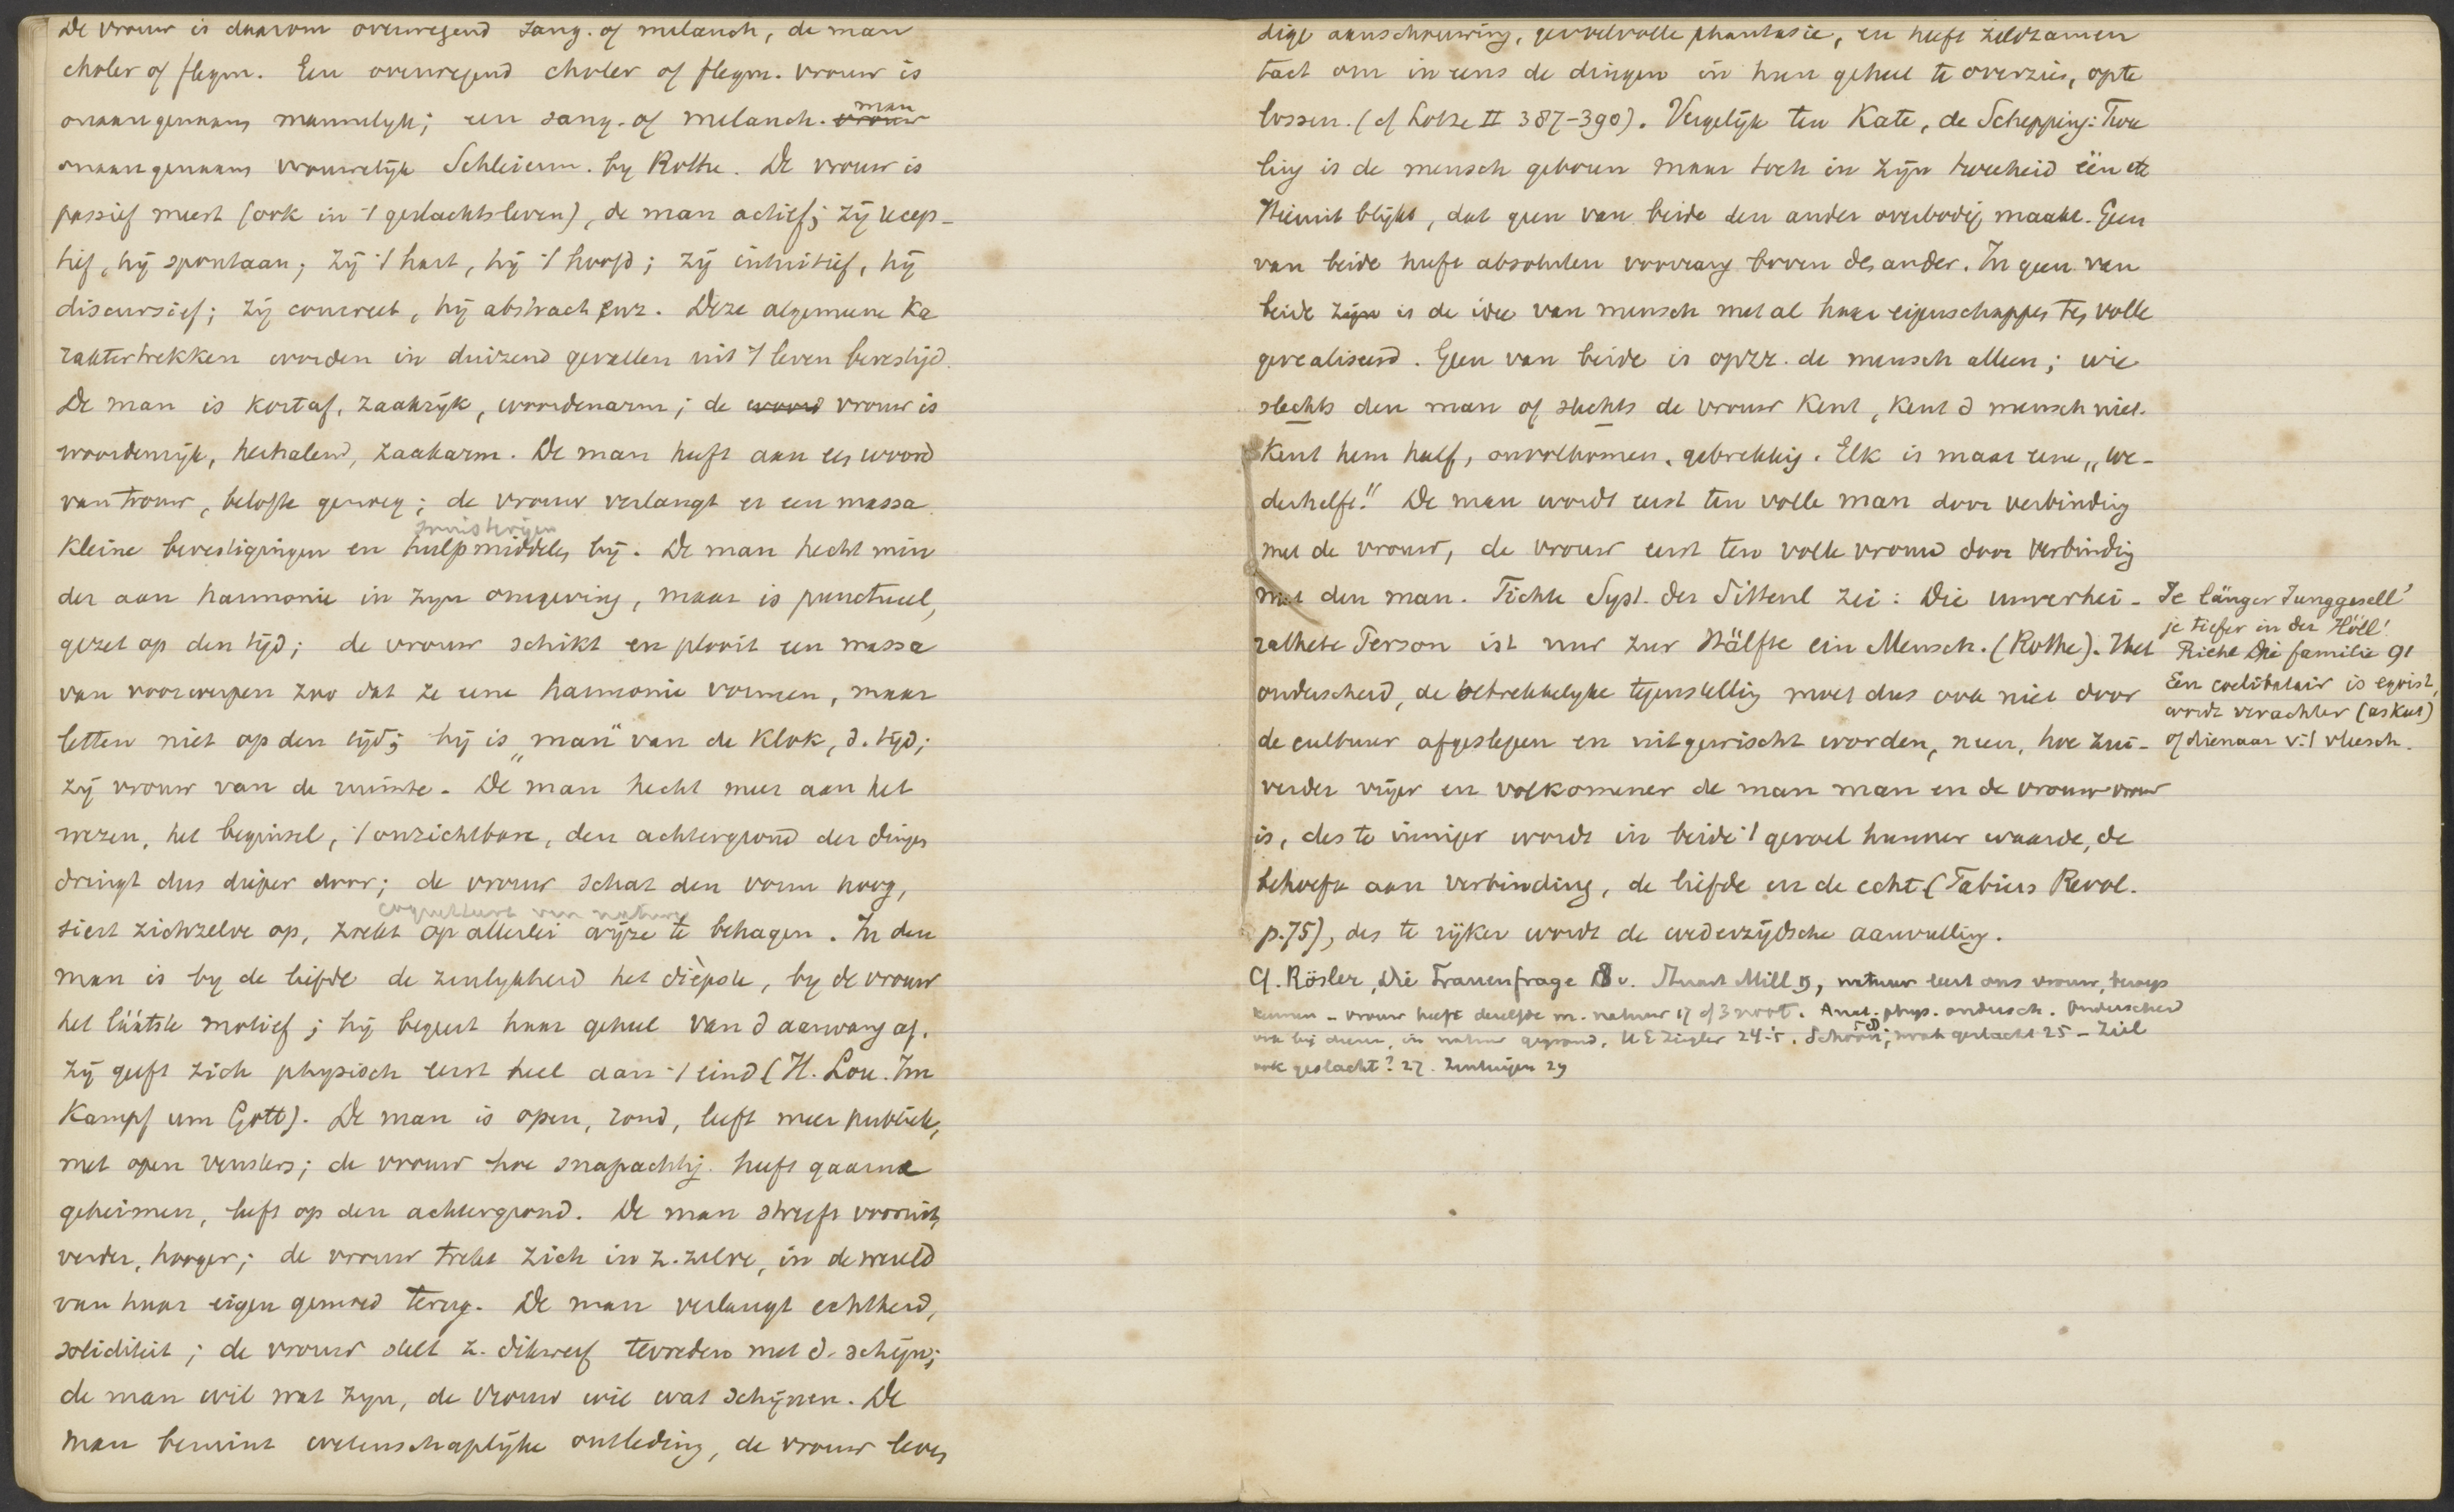 De vrouw is daarom overwegend sang. of melanch, de man
choler of flegm. Een overwegend choler of flegm. vrouw is
man
onaangenaam mannelyk; een sang. of melanch. vrouw
onaangenaam vrouwelyk Schleierm. by Rothe. De vrouw is
passief meest (ook in 't geslachtsleven), de man actief; zy recep-
tief, hy spontaan; zy 't hart, hy 't hoofd; zy intuitief, hy
discursief; zy concreet, hy abstract enz. Deze algemeene ka
raktertrekken worden in duizend gevallen uit 't leven bevestigd.
De man is kortaf, zaakryk, woordenarm; de woord vrouw is
woordenryk, herhalend, zaakarm. De man heeft aan een woord
van trouw, belofte genoeg; de vrouw verlangt er een massa
kleine bevestigingen en hulpmiddelen by. De man hecht min
der aan harmonie in zyn omgeving, maar is punctueel,
gezet op den tyd; de vrouw schikt en plooit een massa
van voorwerpen zoo dat ze eene harmonie vormen, maar
letten niet op den tyd; hy is „man" van de klok, d. tyd;
zy vrouw van de ruimte. De man hecht meer aan het
wezen, het beginsel, 't onzichtbare, den achtergrond der dingen
dringt dus dieper door; de vrouw schat den vorm hoog,
coquetteert van nature
siert zichzelve op, zoekt op allerlei wyze te behagen. In den
man is by de liefde de zinlykheid het diepste, by de vrouw
het láátste motief; hy begeert haar geheel van d aanvang af.
Zy geeft zich physisch eerst heel aan 't eind (H. Lou. Im
Kampf um Gott). De man is open, rond, leeft meer publiek,
met open vensters; de vrouw hoe snapachtig heeft gaarne
geheimen, leeft op den achtergrond. De man streeft vooruit,
verder, hooger; de vrouw trekt zich in z. zelve, in de wereld
van haar eigen gemoed terug. De man verlangt echtheid,
soliditeit; de vrouw stelt z. dikwerf tevreden met d. schyn;
de man wil wat zyn, de vrouw wil wat schynen. De
man bemint wetenschaplyke ontleding, de vrouw leven
dige aanschouwing, gevoelvolle phantasie, en heeft zeldzamen
tact om in eens de dingen in hun geheel te overzien, op te
lossen. (cf Lotze II 387-390). Vergelyk ten Kate, de Schepping: Twee
ling is de mensch geboren maar toch in zyn tweeheid één
Hieruit blykt, dat geen van beide den ander overbodig maakt. Geen
van beide heeft absoluten voorrang boven den ander. In geen van
beide zyn is de idee van mensch met al haar eigenschappen ten volle
gerealiseerd. Geen van beide is opzz. de mensch alleen; wie
slechts den man of slechts de vrouw kent, kent d mensch niet.
Kent hem half, onvolkomen, gebrekkig. Elk is maar eene „we-
derhelft." De man wordt eerst ten volle man door verbinding
met de vrouw, de vrouw eerst ten volle vrouw door verbinding
met den man. Fichte Syst. der Sittenl zei: Die unverhei-
rathete Person ist nur zur Hälfte ein Mensch. (Rothe). Het
onderscheid, de betrekkelyke tegenstelling moet dus ook niet door
de cultuur afgeslepen en uitgewischt worden, neen, hoe zui-
verder vryer en volkomener de man man en de vrouw vrouw
is, des te inniger wordt in beide 't gevoel hunner waarde, de
behoefte aan verbinding, de liefde en de echt (Fabius Revol.
p. 75), des te ryker wordt de wederzydsche aanvulling.
Je länger Junggesell'
je tiefer in der Höll'
Riehl Die familie 91
Een coelibatair is egoist,
wordt verachter (askeet)
of dienaar v. 't vleesch.
Cf. Rösler, Die Frauenfrage 18 v. Stuart Mill, natuur leert ons vrouw,
kennen - vrouw heeft dezelfde m. natuur 17 of 3 noot. Anat. phys. ondersch. Onderscheid
ook by dieren, in natuur gegrond, H E Ziegler 24. Schoon, zwak geslacht 25 - Ziel
ook geslacht? 27. 29